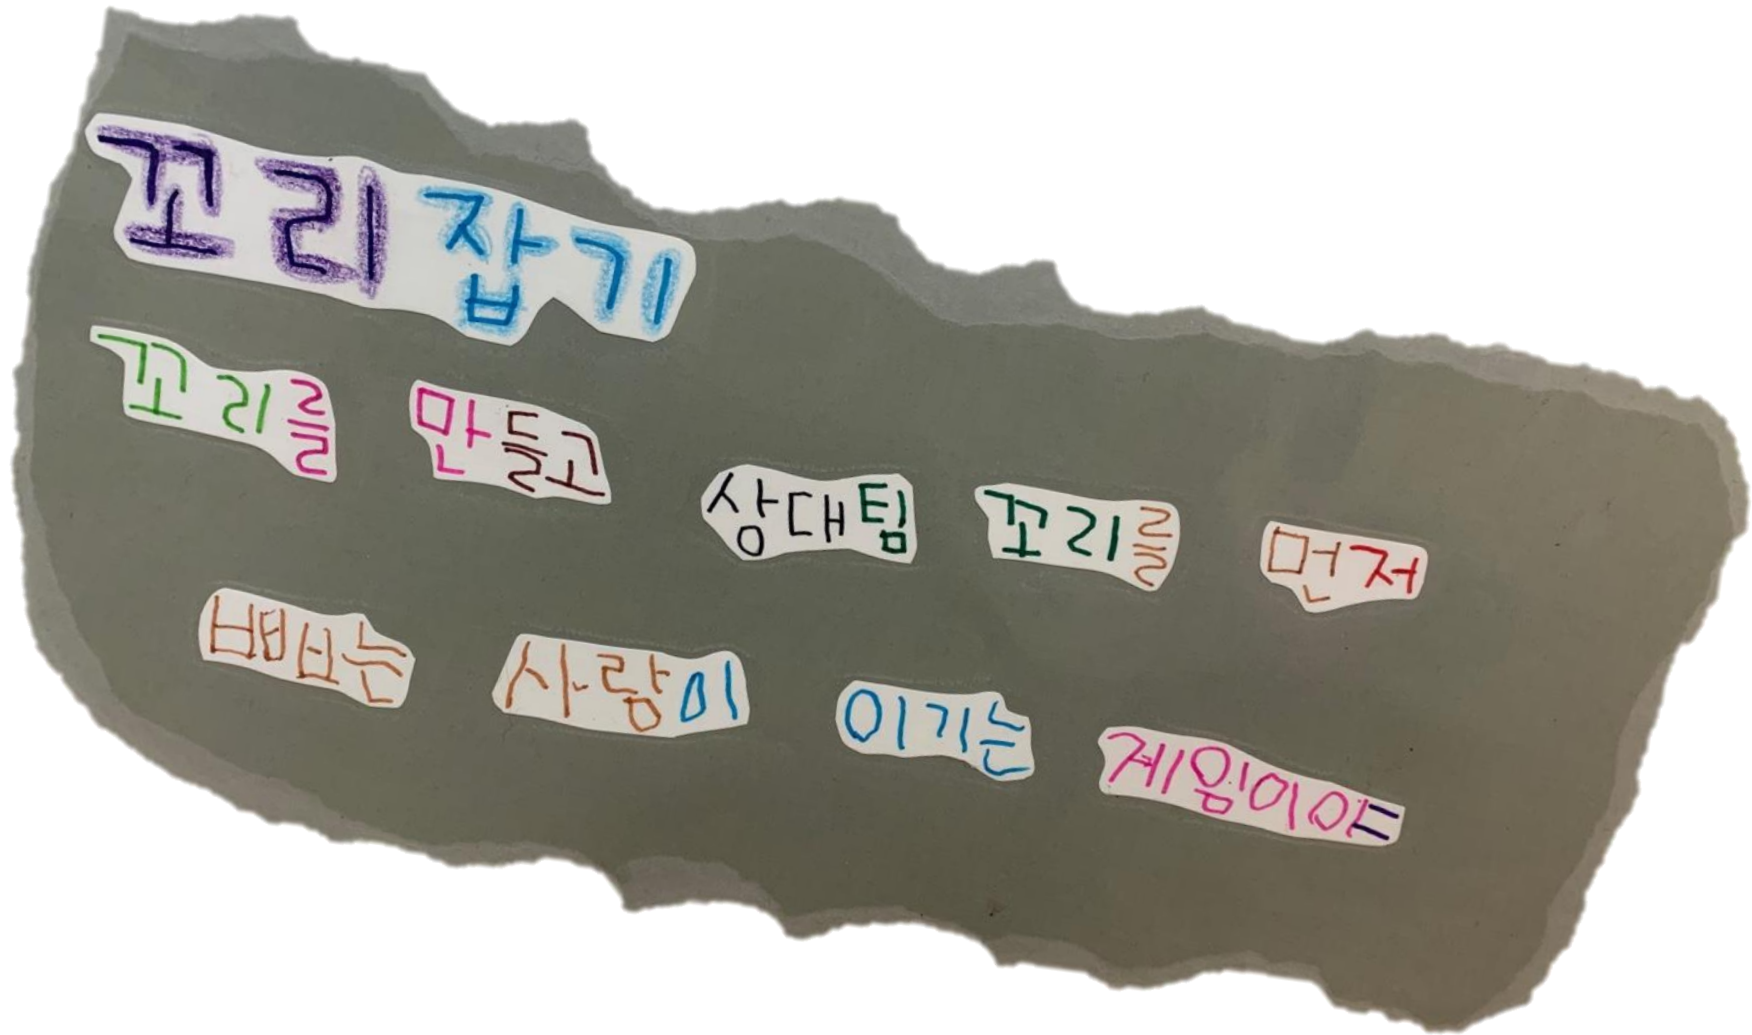 꼬리잡기
꼬리를 만들고 상대팀 꼬리를 먼저
사람이 이기는 게임이야